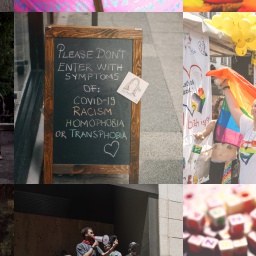 PLEASE DON'T
ENTER WITH
SYMPTOMS
OF:
COVID-19
RACISM
HOMOPHOBIA
OR TRANSPHOBIA